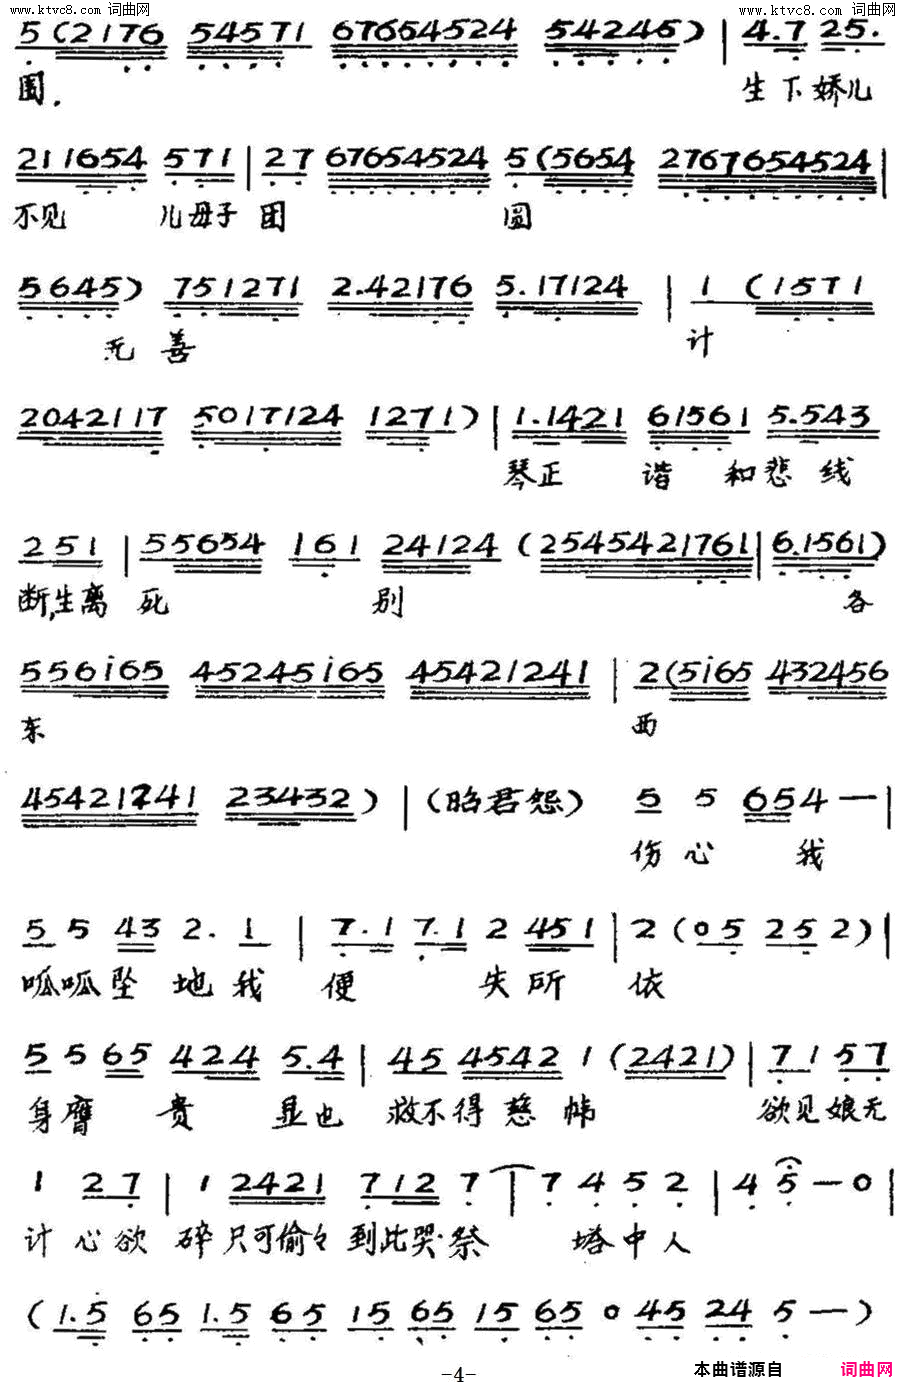 www.ktvc8.com 词曲网 www.ktvc8.com 词曲网
5(2176 54571 67654524 54245) | 4.7 25.
圆. 生下娇儿
211654 571 | 27 67654524 5(5654 2767654524 |
不见 儿母子团 圆
5645) 751271 2.42176 5.17124 | 1 (1571
无善 计
2042117 5017124 1271) | 1.1421 61561 5.543
琴正 谐 和悲线
251 | 55654 161 24124 (2545421761 | 6.1561)
断,生离 死 别 各
556i65 45245i65 45421241 | 2(5i65 432456
东 西
45421241 23432) | (昭君怨) 5 5 654 — |
伤心 我
5 5 43 2. 1 | 7.1 7.1 2 451 | 2 (05 252) |
呱呱坠 地我 便 失所 依
5 5 65 424 5.4 | 45 4542 1 (2421) | 71 57
身膺 贵 显也 救不得慈帏 欲见娘无
1 27 | 1 2421 712 7 | 7 4 5 2 | 4 5 — 0 |
计心欲 碎只可偷々到此哭祭 塔中人
(1.5 65 1.5 65 15 65 15 65 0 45 24 5 —)
-4-
本曲谱源自 词曲网